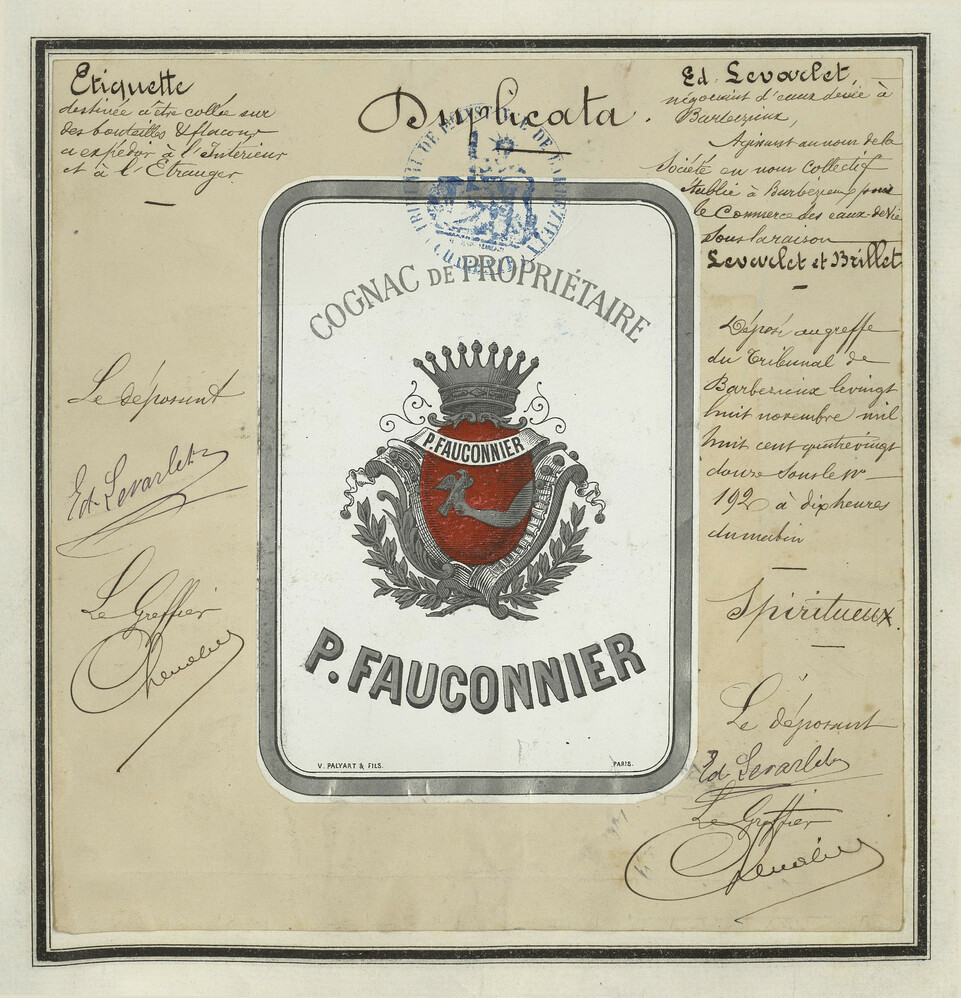 Etiquette
destinée à être collée sur
des bouteilles & flacons
a expédier à l'Intérieur
et à l'Étranger.
Duplicata.
Ed. Levarlet,
négociant d'eaux de vie à
Barbezieux,
Agissant au nom de la
Société en nom collectif
établie à Barbezieux pour
le Commerce des eaux de Vie
sous la raison
Levarlet et Brillet
TRIBUNAL DE
COGNAC DE PROPRIÉTAIRE
P. FAUCONNIER
P. FAUCONNIER
V. PALYART & FILS.
PARIS.
Le déposant
Ed. Levarlet
Le Greffier
Déposé au greffe
du Tribunal de
Barbezieux le vingt
huit novembre mil
huit cent quatre vingt
douze sous le No
192 à dix heures
du matin
Spiritueux.
Le déposant
Ed. Levarlet
Le Greffier